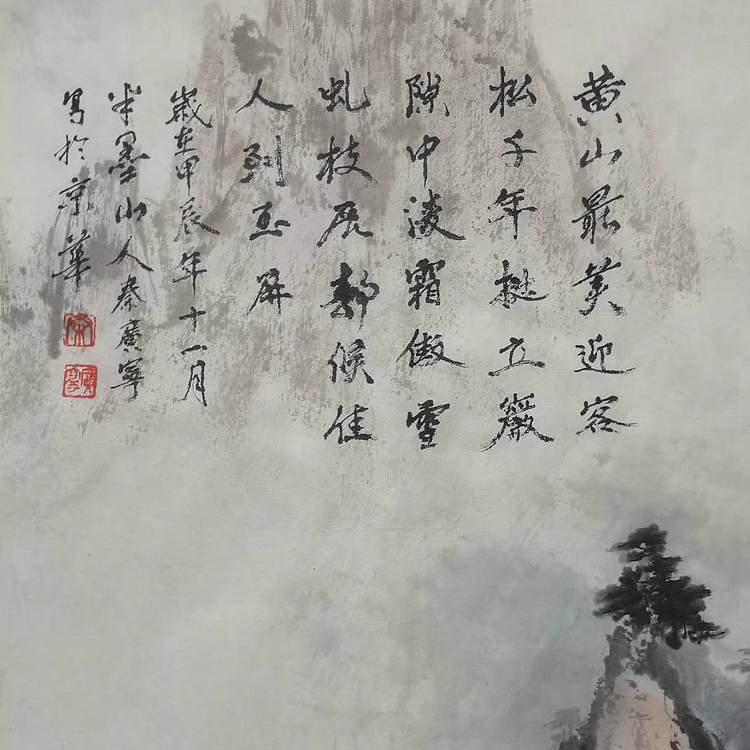 黄山最美迎客
松千年挺立巖
隙中凌霜傲雪
虬枝展静候佳
人到玉屏
歲在甲辰年十一月
半墨山人秦廣寧
写於京華